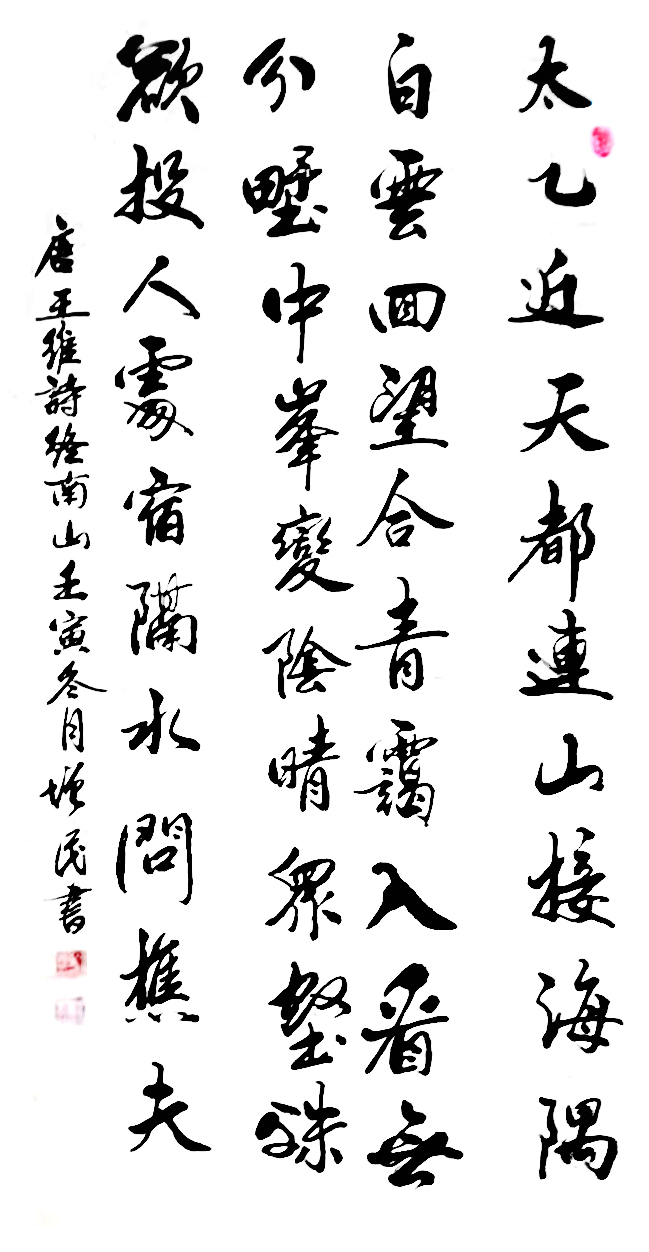 太乙近天都連山接海隅
白雲回望合青靄入看無
分壄中峯變陰晴眾壑殊
欲投人處宿隔水問樵夫
唐王維詩終南山壬寅冬月增民書